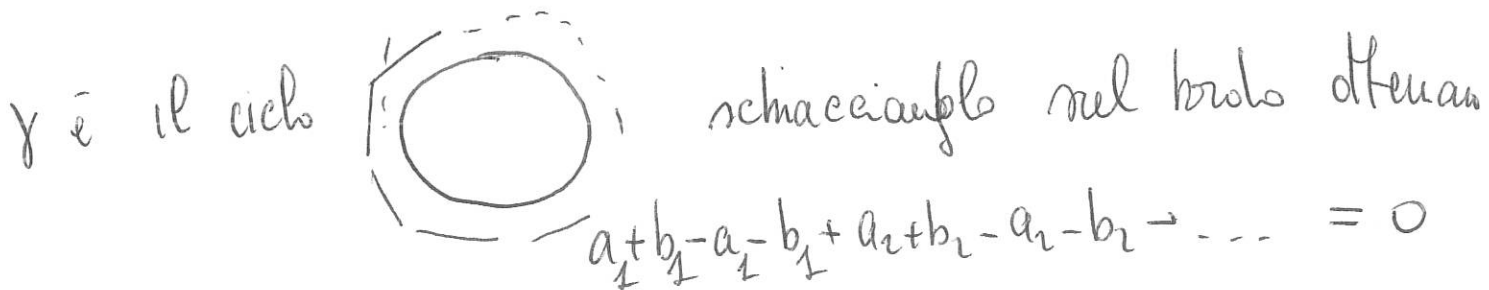 γ è il ciclo schiacciandolo sul bordo otteniamo
a₁+b₁-a₁-b₁+a₂+b₂-a₂-b₂-... = 0